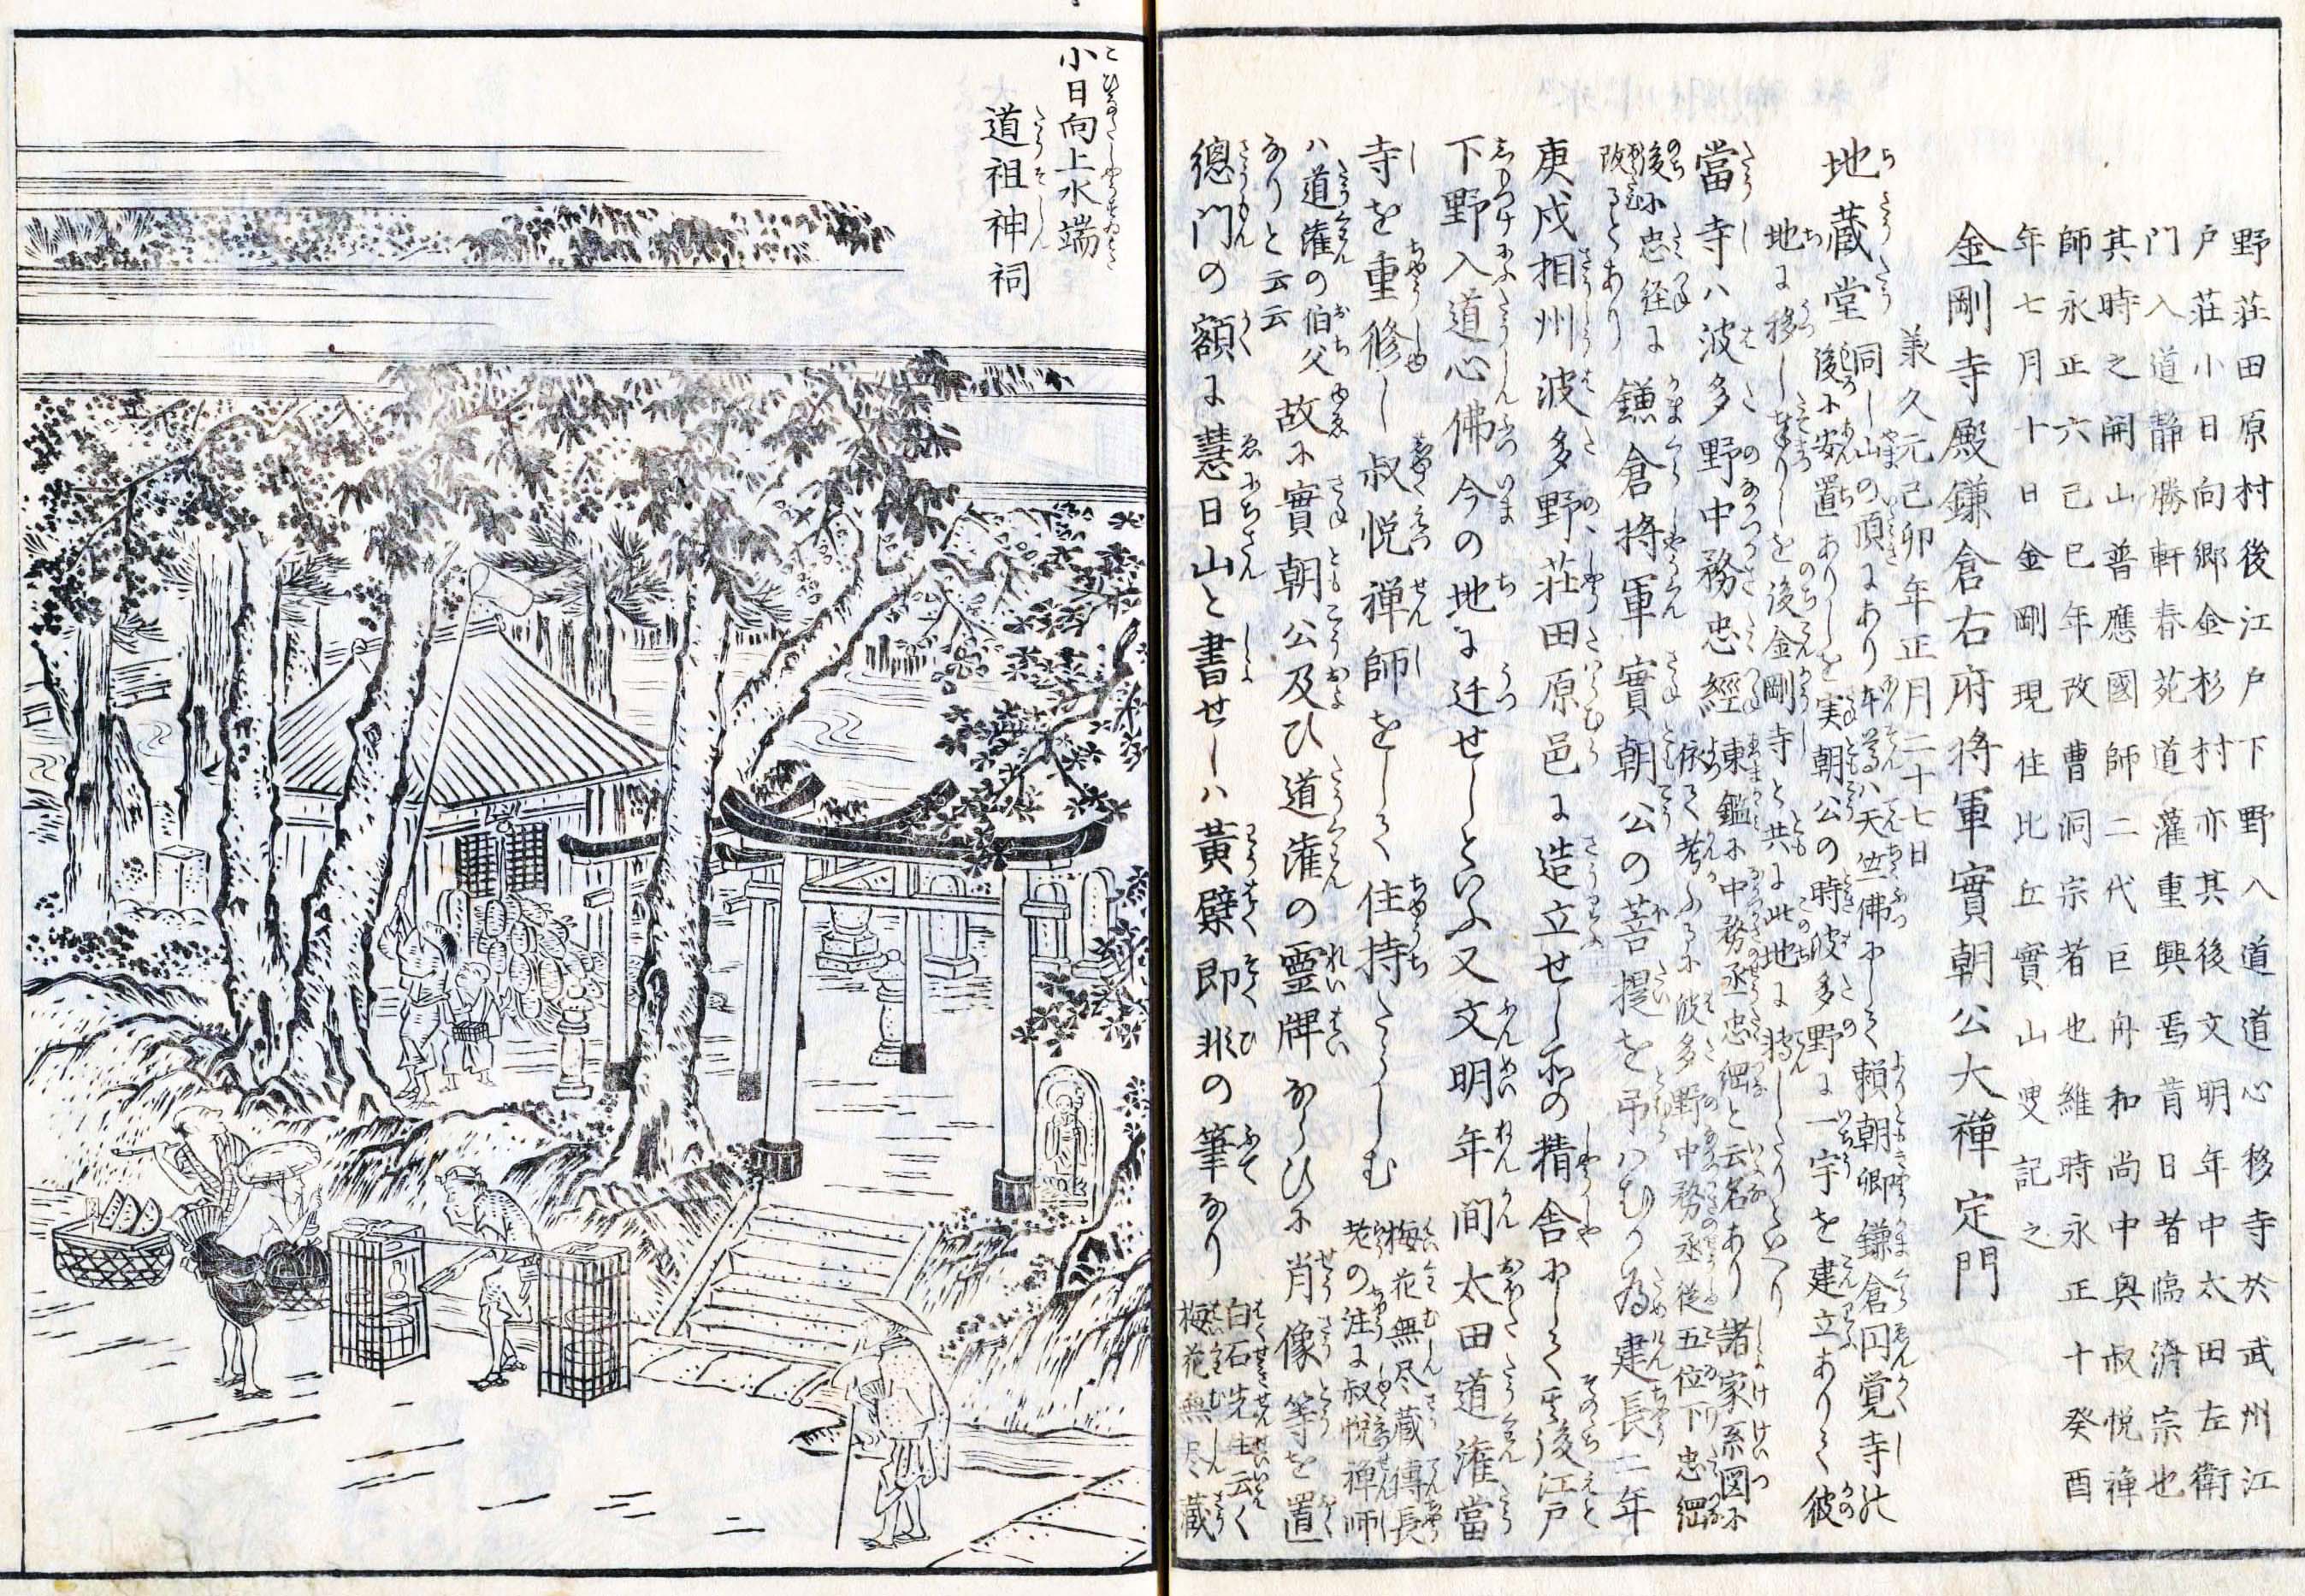 野荘田原村後江戸下野入道道心移寺於武州江
戸荘小日向郷金杉村亦其後文明年中太田左衛
門入道静勝軒春苑道灌重興焉昔日者臨済宗也
其時之開山普應國師二代巨舟和尚中興叔悦禅
師永正六己巳年改曹洞宗者也維時永正十癸酉
年七月十日金剛現住比丘實山叟記之
金剛寺殿鎌倉右府将軍實朝公大禅定門
承久元己卯年正月二十七日
地蔵堂 同し山の頂にあり本尊ハ天竺佛にして頼朝卿鎌倉円覚寺の
後に安置ありしを実朝公の時波多野に一宇を建立ありて彼
地に移し奉りしを後金剛寺と共に此地に轉したりといへり
當寺ハ波多野中務忠經 東鑑に中務丞忠綱と云名あり諸家系図に
依て考ふるに波多野中務丞従五位下忠綱
後に忠経に
改るとあり
鎌倉将軍實朝公の菩提を弔ハむか為建長二年
庚戌相州波多野荘田原邑に造立せし所の精舎にして其後江戸
下野入道心佛今の地に迁せしといふ又文明年間太田道潅當
寺を重修し叔悦禅師をして住持たらしむ 梅花無尽蔵傳長
老の注に叔悦禅師
ハ道潅の伯父
なりと云云
故に實朝公及ひ道潅の靈牌ならひに肖像等を置
總門の額に慧日山と書せしハ黄檗即非の筆なり 白石先生云く
梅花無尽蔵
小日向上水端
道祖神祠